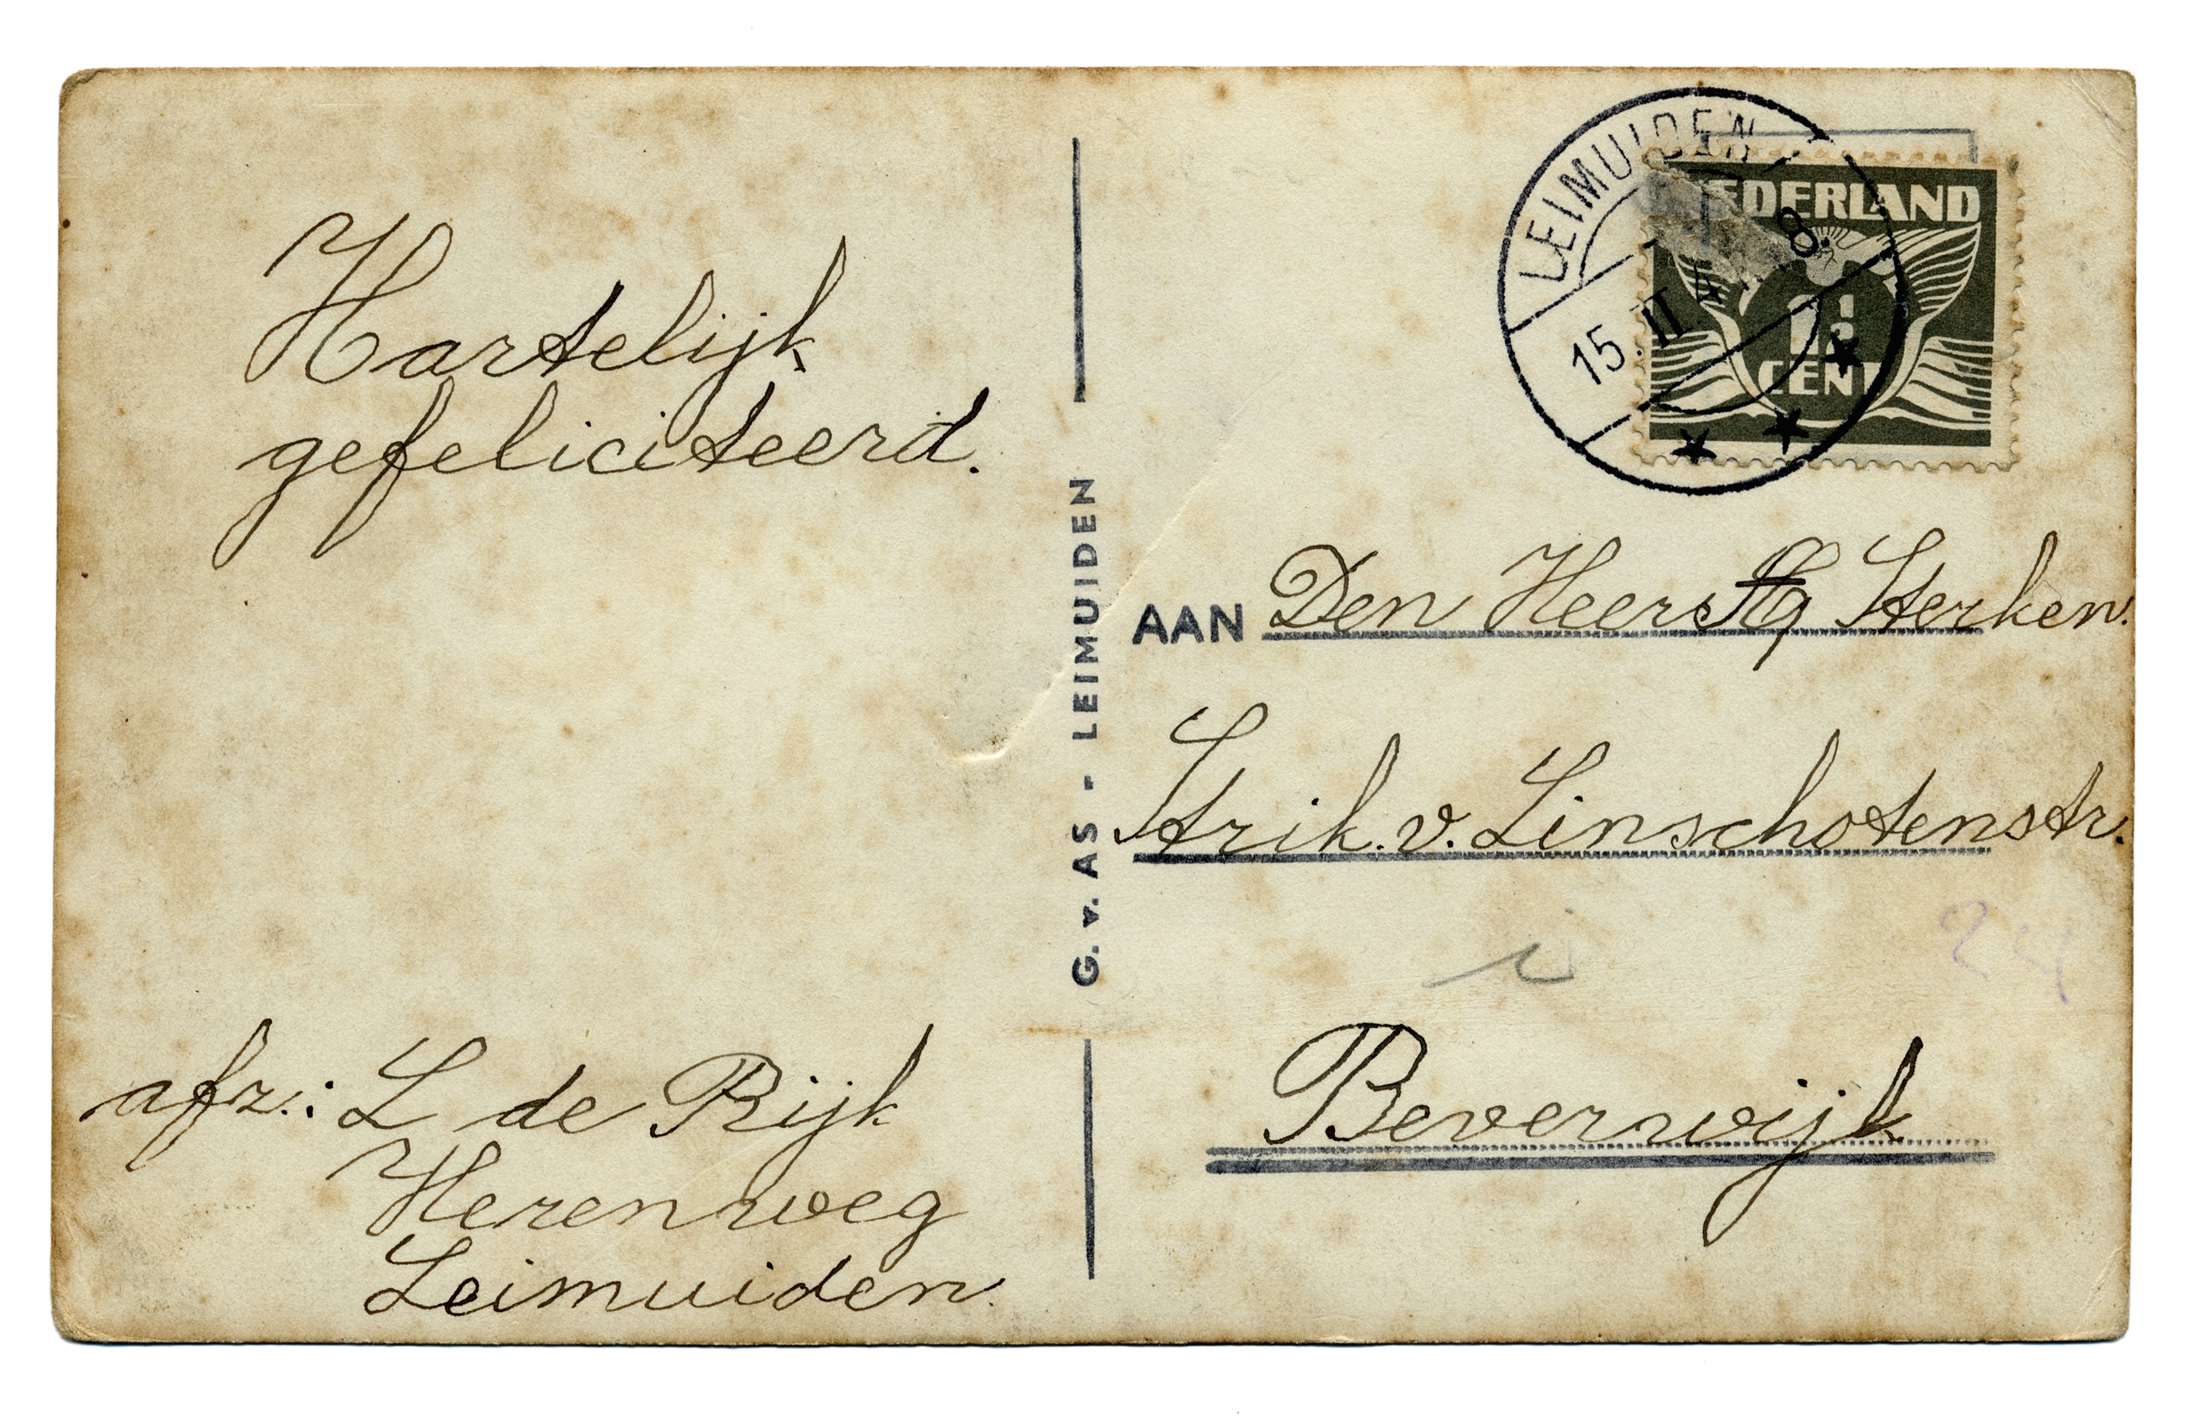 Hartelijk
gefeliciteerd.
afz.: L de Rijk
Herenweg
Leimuiden.
G. v. AS - LEIMUIDEN
LEIMUIDEN
15.II 4 8.
NEDERLAND
1½
CENT
AAN Den Heer Sterken.
Strik. v. Linschotenstr.
24
Beverwijk